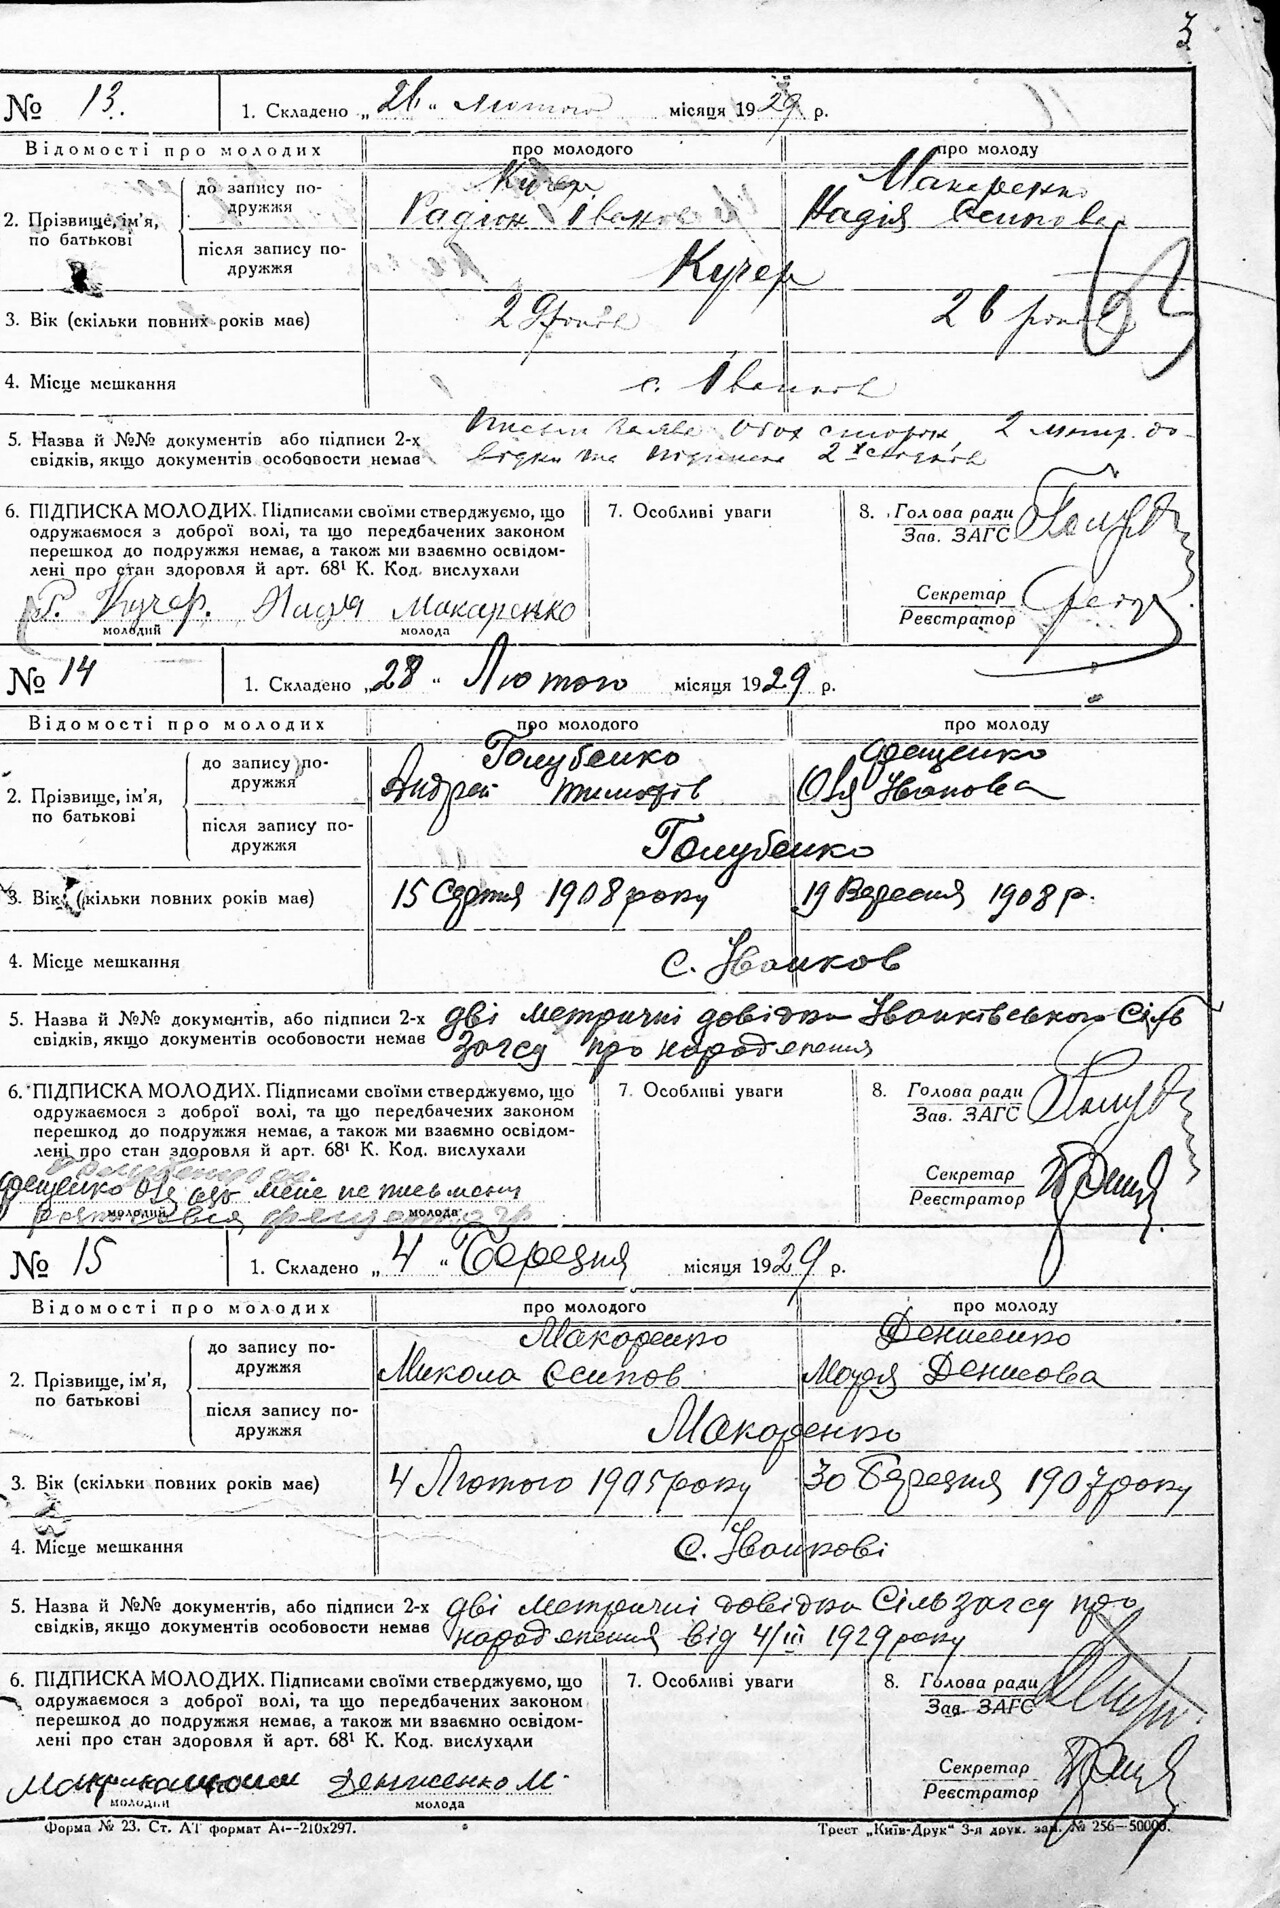 3
№ 13. 1. Складено „26" Лютого місяця 1929 р.
Відомості про молодих про молодого про молоду
2. Прізвище, ім'я, по батькові
до запису по-дружжя Кучер Макаренко
Радіон Іванов Надія Осипова
після запису по-дружжя Кучер
3. Вік (скільки повних років має) 29 років 26 років
4. Місце мешкання с. Іванков
5. Назва й №№ документів або підписи 2-х обох сторон, 2 метр. до-
свідків, якщо документів особовости немає відки та підписи 2х свідків
6. ПІДПИСКА МОЛОДИХ. Підписами своїми стверджуємо, що 7. Особливі уваги 8. Голова ради
одружаємося з доброї волі, та що передбачених законом Зав. ЗАГС
перешкод до подружжя немає, а також ми взаємно освідом-
лені про стан здоровля й арт. 68¹ К. Код. вислухали Секретар
Р. Кучер. Надія Макаренко Реєстратор
молодий молода
№ 14 1. Складено „28" Лютого місяця 1929 р.
Відомості про молодих про молодого про молоду
2. Прізвище, ім'я, по батькові
до запису по-дружжя Голубенко Фещенко
Андрей Тимофів Оля Іванова
після запису по-дружжя Голубенко
3. Вік (скільки повних років має) 15 Серпня 1908 року 19 Вересня 1908 р.
4. Місце мешкання с. Іванков
5. Назва й №№ документів, або підписи 2-х дві метричні довідки Іванківського Сіль
свідків, якщо документів особовости немає Загсу про народження
6. ПІДПИСКА МОЛОДИХ. Підписами своїми стверджуємо, що 7. Особливі уваги 8. Голова ради
одружаємося з доброї волі, та що передбачених законом Зав. ЗАГС
перешкод до подружжя немає, а також ми взаємно освідом-
лені про стан здоровля й арт. 68¹ К. Код. вислухали Секретар
Фещенко Оля не письмени Реєстратор
молодий молода
№ 15 1. Складено „4" Березня місяця 1929 р.
Відомості про молодих про молодого про молоду
2. Прізвище, ім'я, по батькові
до запису по-дружжя Макаренко Денисенко
Микола Осипов Марія Денисова
після запису по-дружжя Макаренко
3. Вік (скільки повних років має) 4 Лютого 1905 року 30 Березня 1907 року
4. Місце мешкання с. Іванкові
5. Назва й №№ документів, або підписи 2-х дві метричні довідки Сільзагсу про
свідків, якщо документів особовости немає народження від 4/III 1929 року
6. ПІДПИСКА МОЛОДИХ. Підписами своїми стверджуємо, що 7. Особливі уваги 8. Голова ради
одружаємося з доброї волі, та що передбачених законом Зав. ЗАГС
перешкод до подружжя немає, а також ми взаємно освідом-
лені про стан здоровля й арт. 68¹ К. Код. вислухали Секретар
Денисенко М. Реєстратор
молодий молода
Форма № 23. Ст. АТ формат А4--210х297. Трест „Київ-Друк" 3-я друк. зам. № 256—50000.